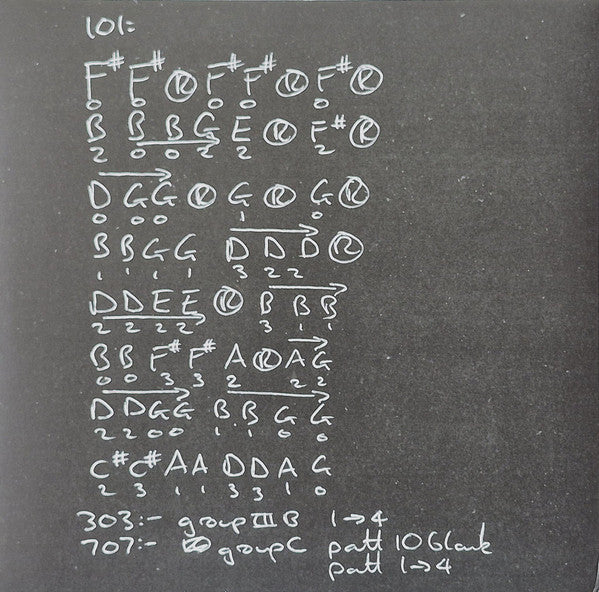 101:
F# F# Ⓡ F# F# Ⓡ F# Ⓡ
0 0 0 0 0
B B B G E Ⓡ F# Ⓡ
2 0 0 2 2 2
D G G Ⓡ G Ⓡ G Ⓡ
0 0 0 1 0
B B G G D D D Ⓡ
1 1 1 1 3 2 2
D D E E Ⓡ B B B
2 2 2 2 3 1 1
B B F# F# A Ⓡ A G
0 0 3 3 2 2 2
D D G G B B G G
2 2 0 0 1 1 0 0
C# C# A A D D A G
2 3 1 1 3 3 1 0
303:- group III B 1→4
707:- group C patt 10 blank
patt 1→4